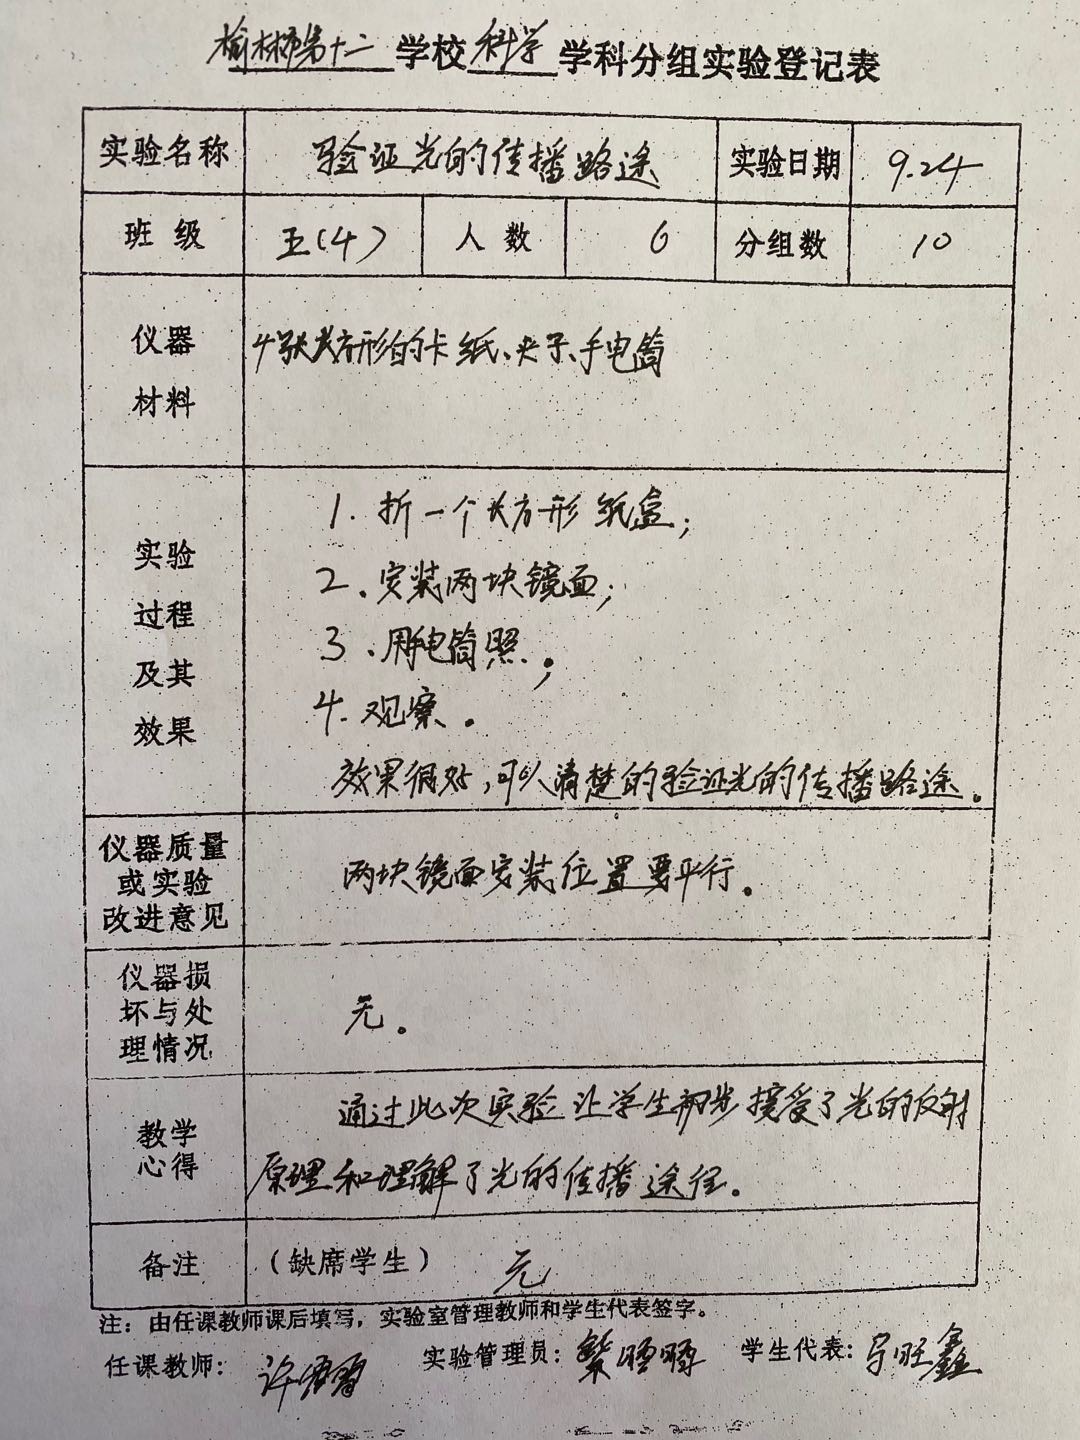 榆林市第十二学校科学学科分组实验登记表
实验名称 验证光的传播路途 实验日期 9.24
班级 五(4) 人数 6 分组数 10
仪器
材料
4张长方形的卡纸、夹子、手电筒
实验
过程
及其
效果
1. 折一个长方形纸盒;
2、安装两块镜面;
3、用手电筒照;
4. 观察。
效果很好,可以清楚的验证光的传播路途。
仪器质量
或实验
改进意见
两块镜面安装位置要平行。
仪器损
坏与处
理情况
无。
教学
心得
通过此次实验让学生初步接受了光的反射
原理和理解了光的传播途径。
备注 (缺席学生) 无
注:由任课教师课后填写,实验室管理教师和学生代表签字。
任课教师: 许 实验管理员: 学生代表: 旺鑫